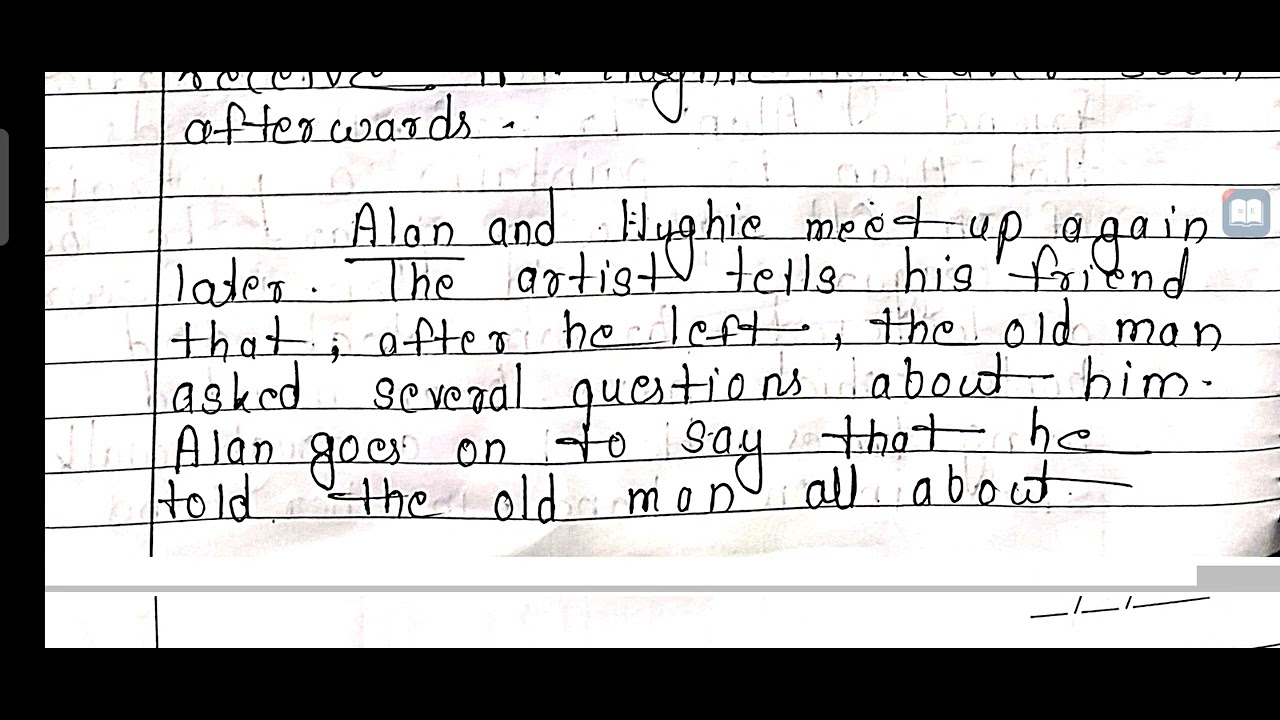 receive
afterwards.
Alan and Hughie meet up again
later. The artist tells his friend
that, after he left, the old man
asked several questions about him.
Alan goes on to say that he
told the old man all about